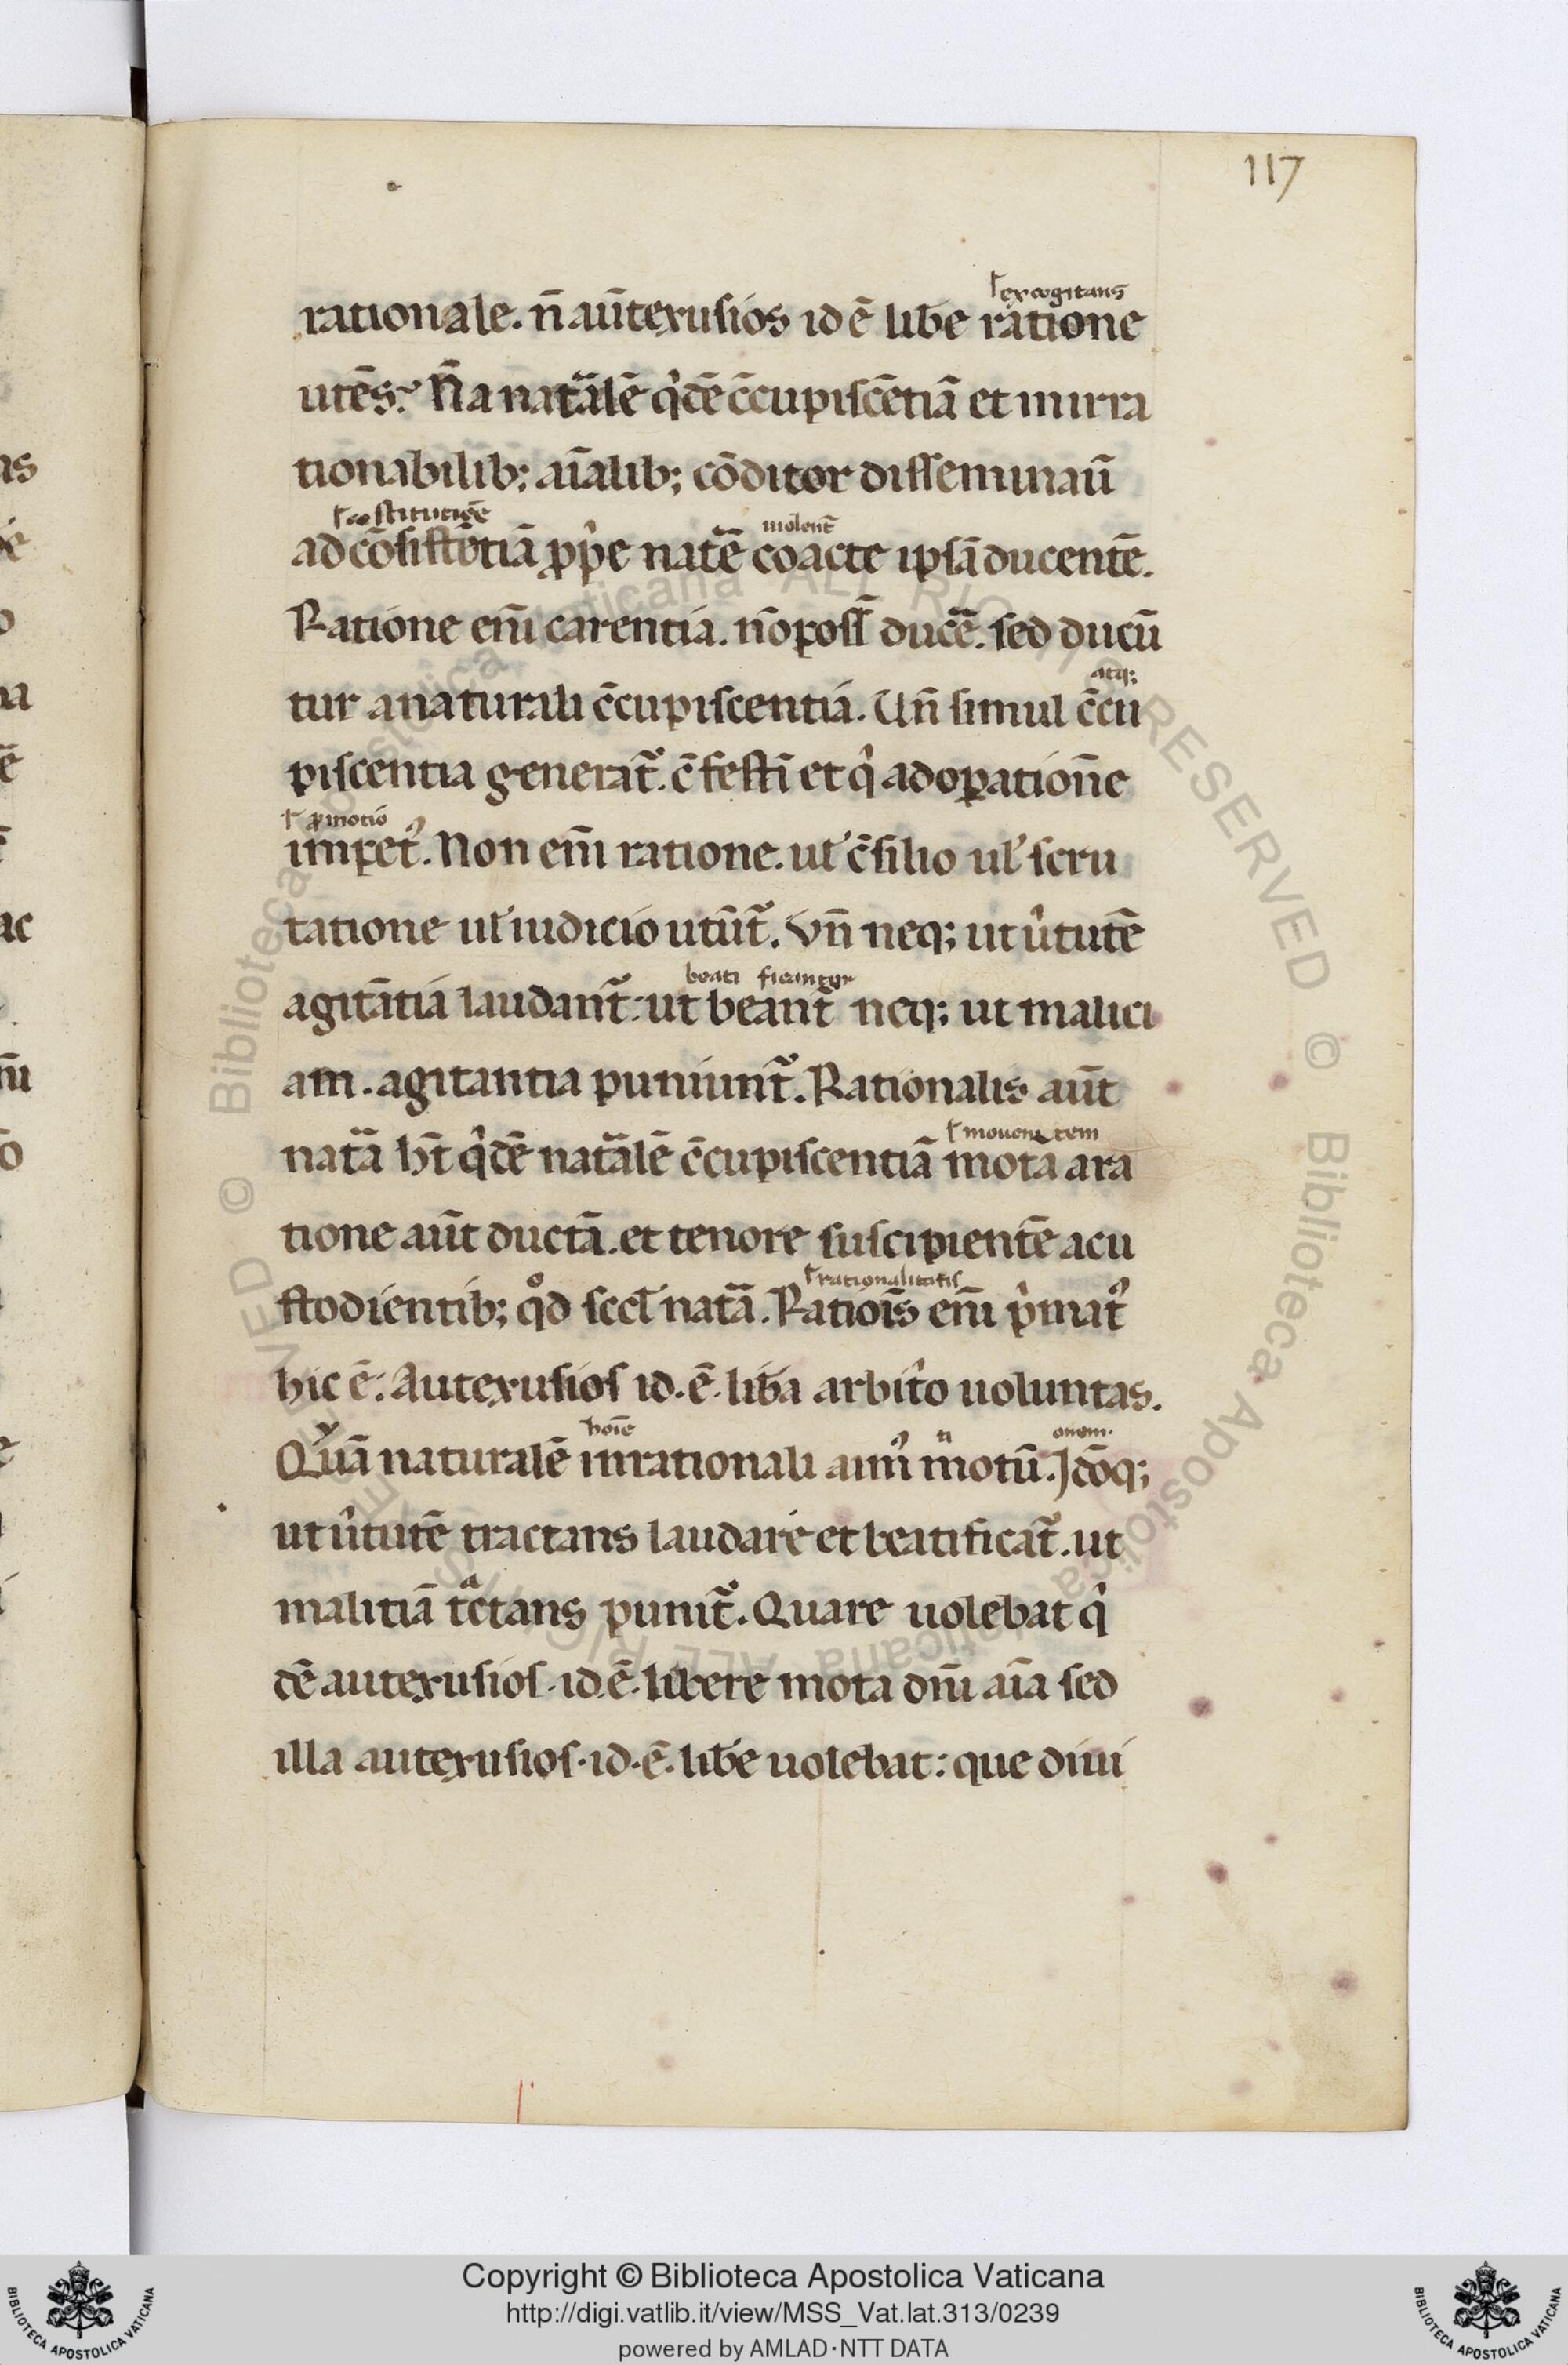 117
ł excogitans
rationale. n̄ aūtexusios id ē lib̄e ratione
utēs? N̄a natālē q̇dē c̄cupiscētiā et in irra
tionabilib; aīalib; cōditor disseminaū
ł cōstitutiōē uiolent̄
ad cōsistētiā ꝓṗe natē coacte ipsā ducentē.
Ratione eni̅ carentia. nō poss̄ ducē. sed ducū
atq;
tur a naturali c̄cupiscentia. Un̄ simul c̄cu
piscentia generat᷑. c̄festī et q̇ ad oꝑation̄e
ł ꝓmotio
impet᾽. Non eni̅ ratione. ul̕ c̄silio ul̕ scru
tatione ul̕ iudicio utūt᷑. Vn̄ neq; ut u̇tutē
beati ficantur
agitātia laudant᷑: ut beant᷑ neq; ut malici
am. agitantia puniunt᷑. Rationalis aūt
ł mouentem
natā h̄t q̇dē natālē c̄cupiscentiā mota a ra
tione aūt ductā. et tenore suscipientē a cu
stodientib; qͦd sccl̄ natā. Ratiōis eni̅ ṗmat᾽
ł rationalitatis
hic ē. Autexusios id. ē. lib̄a arbiṫo uoluntas.
hoīe n̄ onem.
Quā naturalē inrationali aim᾽ motū. Idōq;
ut u̇tutē tractans laudare et beatificat᷑. ut
malitiā tͣctans punit᷑. Quare uolebat q̇
dē autexusios. id. ē. libere mota dn̄i aīa sed
illa autexusios. id. ē. lib̄e uolebat: que diui
Copyright © Biblioteca Apostolica Vaticana
http://digi.vatlib.it/view/MSS_Vat.lat.313/0239
powered by AMLAD·NTT DATA